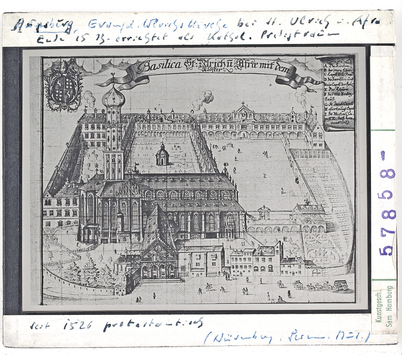 Augsburg, Evangel. Ulrichskirche bei St. Ulrich u. Afra
Ende 15 Jh. errichtet als kathol. Predigtraum
Basilica St. Ulrich u. Afrae mit dem
Closter
seit 1526 protestantisch
(Nürnberg, Germ. Mus.)
57858
Kunstgesch.
Sem. Hamburg